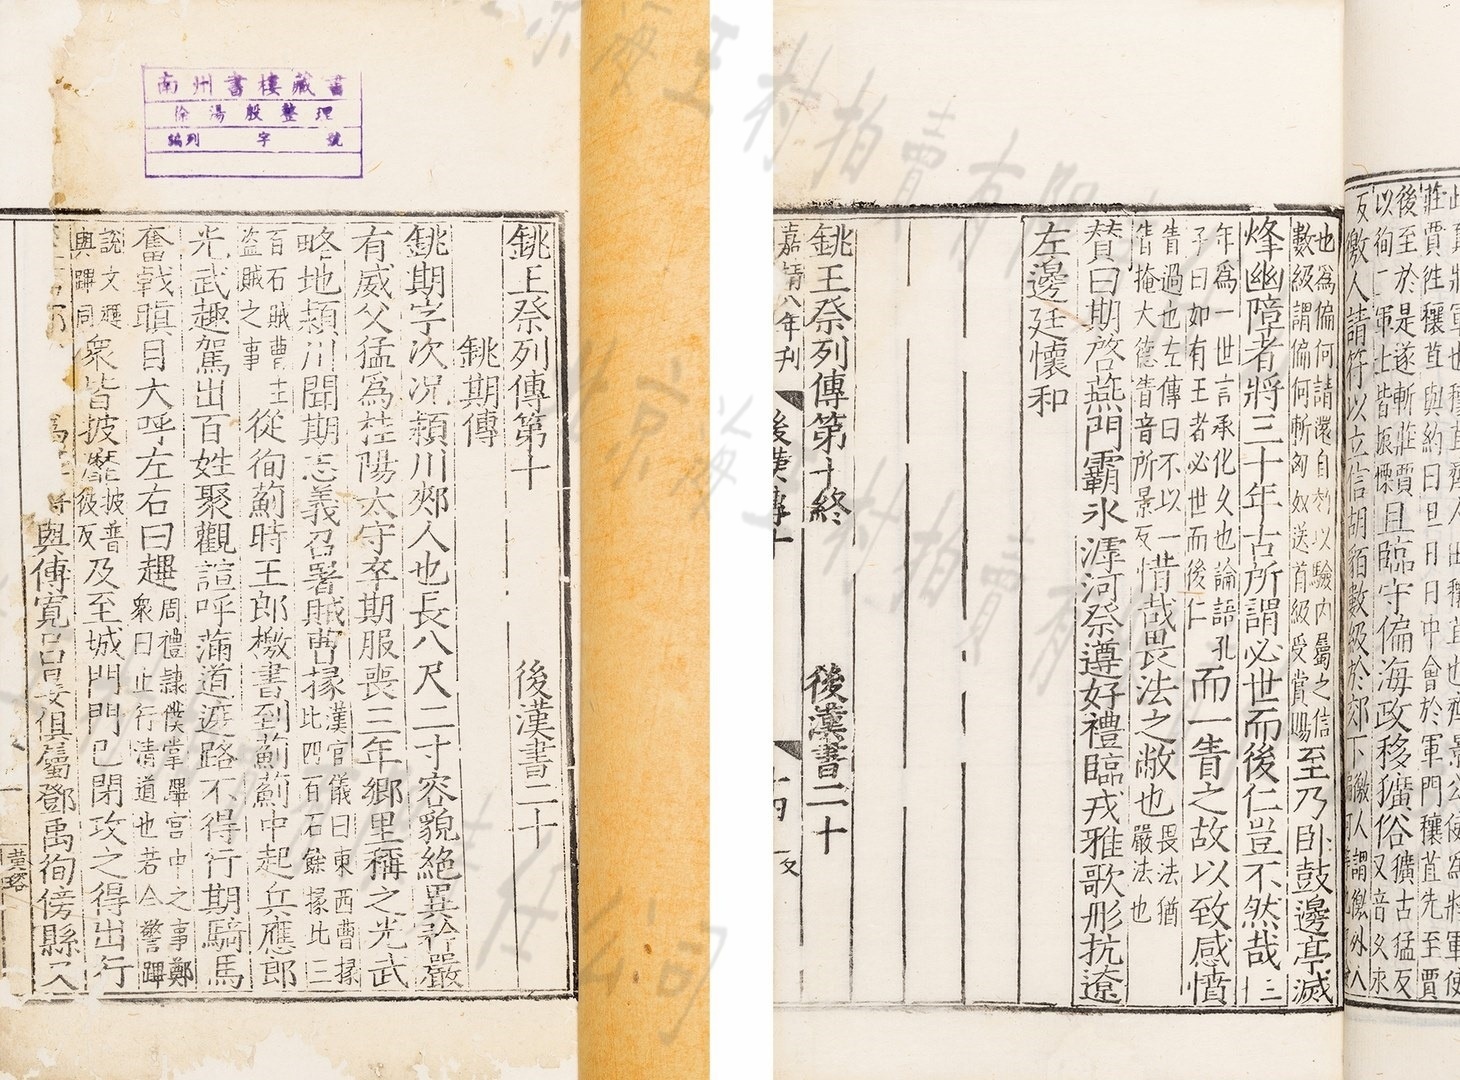 南州書樓藏書
徐湯殷整理
編列 字 號
銚王祭列傳第十 後漢書二十
銚期傳
銚期字次況潁川郟人也長八尺二寸容貌絕異矜嚴
有威父猛為桂陽太守卒期服喪三年鄉里稱之光武
略地潁川聞期志義召署賊曹掾漢官儀曰東西曹掾比四百石餘掾比三
百石賊曹主盜賊之事從徇薊時王郎檄書到薊薊中起兵應郎
光武趨駕出百姓聚觀諠呼滿道遮路不得行期騎馬
奮戟瞋目大呼左右曰趩周禮隸僕掌蹕宮中之事鄭衆曰止行清道也若今警蹕
說文趩與蹕同衆皆披靡披普彼反及至城門門已閉攻之得出行
與傅寬呂晏俱屬鄧禹徇傍縣又
黃琮
莊賈往穰苴與約曰旦日日中會於軍門穰苴先至賈
後至於是遂斬莊賈
以徇三軍三軍之士皆振慄且臨守偏海政移獷俗獷古猛反又音久永
反徼人請符以立信胡貊數級於郊下徼人謂徼外人
也為偏何請還自効以驗內屬之信
數級謂偏何斬匈奴送首級受賞賜至乃臥鼓邊亭滅
烽幽障者將三十年古所謂必世而後仁豈不然哉三十
年為一世言承化久也論語孔
子曰如有王者必世而後仁而一眚之故以致感憤
眚過也左傳曰不以一
眚掩大德眚音所景反惜哉畏法之敝也畏法猶嚴法也
贊曰期啓燕門霸冰滹河祭遵好禮臨戎雅歌肜抗遼
左邊廷懷和
銚王祭列傳第十終 後漢書二十
嘉靖八年刊 後漢傳十 十四